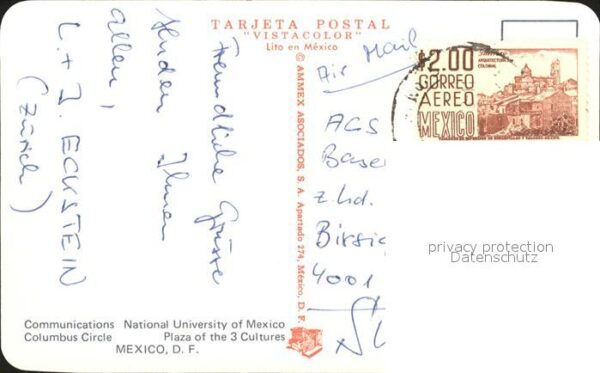 TARJETA POSTAL
"VISTACOLOR"
Lito en México
Freundliche Grüsse
senden Ihnen
allen,
L. + J. ECKSTEIN
(Zürich)
© AMMEX ASOCIADOS, S. A. Apartado 274, México, D. F.
Air Mail
AGS
Base
z.hd.
Birsig
4001
$2.00
CORREO
AEREO
MEXICO
ARQUITECTURA
COLONIAL
privacy protection
Datenschutz
Communications National University of Mexico
Columbus Circle Plaza of the 3 Cultures
MEXICO, D. F.